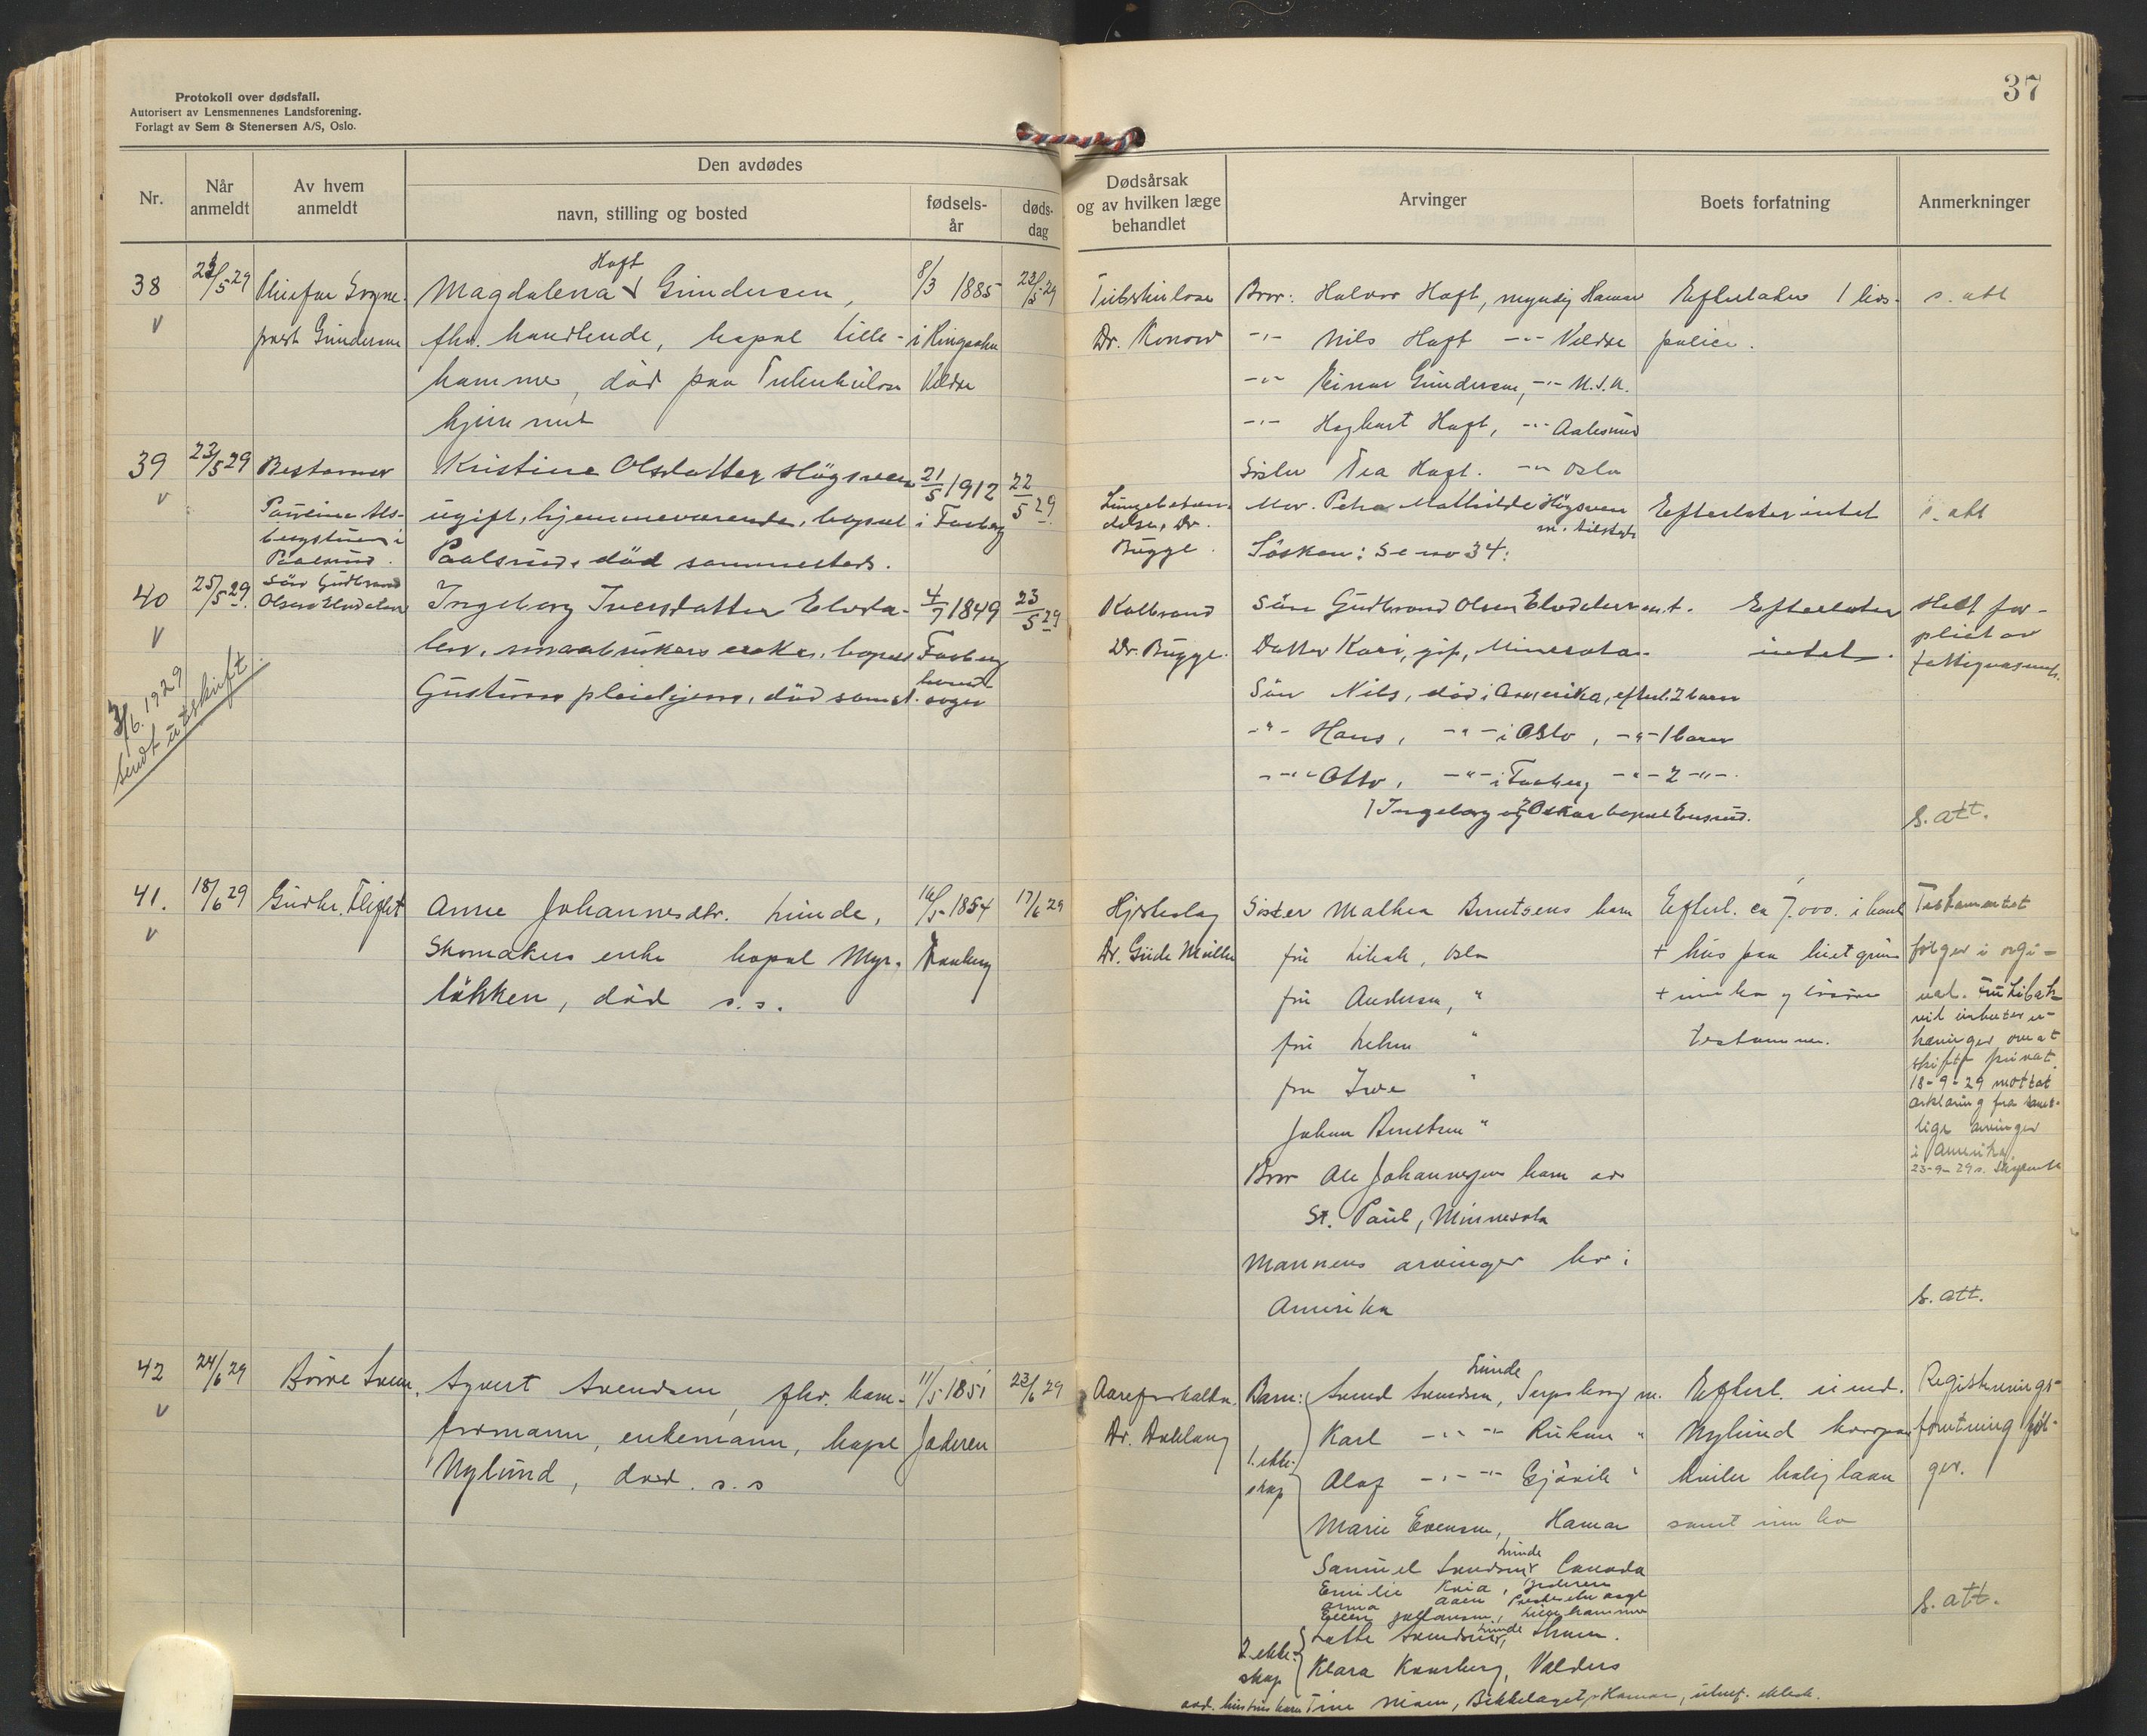 Protokoll over dødsfall.
Autorisert av Lensmennenes Landsforening.
Forlagt av Sem & Stenersen A/S, Oslo.
37
Nr.
Når anmeldt
Av hvem anmeldt
Den avdødes
navn, stilling og bosted
fødsels-år
døds-dag
Dødsårsak og av hvilken læge behandlet
Arvinger
Boets forfatning
Anmerkninger
38
V
/5 29
prest Gundersen
Hoft
Magdalena Gundersen,
fhv. handlende, bopæl Lille-
hammer, død paa Tuberkulose
hjemmet
8/3 1885
i Ringsaker
Veldre
23/5 29
Tuberkulose
Dr. Konow
Bror: Halvor Hoft, myndig Hamar
-"- Nils Hoft -"- Veldre
-"- Einar Gundersen, -"- U.S.A.
-"- Hagbart Hoft, -"- Aalesund
Søster Tea Hoft. -"- Oslo
Efterlater 1 livs-
police.
s. att
39
V
23/5 29
Bestemor
i
Paalsrud.
Kristine Olsdatter Høgsveen
ugift, hjemmeværende, bopæl
Paalsrud, død sammesteds.
21/5 1912
i Faaberg
22/5 29
Lungebeten-
delse, Dr.
Bugge.
Mor. Petra Mathilde Høgsveen
m. tilstede
Søsken: Se no 34:
Efterlater intet
s. att
40
V
25/5 29.
Søn Gudbrand
Olsen Elvdalen
Ingeborg Iversdatter Elvda-
len, smaabrukers enke, bopæl
Gustuen pleiehjem, død samst.
4/7 1849
Faaberg
hoved-
sogn
23/5 29
3/6. 1929
Sendt utskrift.
Kolbrand
Dr. Bugge.
Søn Gudbrand Olsen Elvdalen m.t.
Datter Kari, gift, Minesota.
Søn Nils, død i Amerika, efterl. 2 barn
-"- Hans, -"- i Oslo, -"- 1 barn
-"- Otto, -"- i Faaberg -"- 2 -"-.
1 Ingeborg og 2 Oskar bopæl Ensrud.
Efterlater
intet.
Helt for-
pleiet av
fattigvæsenet.
s. att.
41.
V
18/6 29
Gudbr. Fliflet
Anne Johannesdtr. Lunde,
Skomakers enke bopæl Myr-
løkken, død s.s.
16/5 1854
Faaberg
17/6 29
Hjerteslag
Dr. Gude Müller
Søster Mathea Berntsens barn
fru Libak, Oslo
fru Andersen, "
fru Lehm "
fru Iwe "
Johan Berntsen "
Bror Ole Johannesen barn av
St. Paul, Minnesota
Mannens arvinger bor i
Amerika
Efterl. ca 7.000. i bank
+ hus paa leiet grund
+ innbo og løsøre
testamen.
Testamentet
følger i orgi-
nal. Fru Libak
vil innhente er-
klæringer om at
skifte privat.
18-9-29 mottat
erklæring fra sam-
lige arvinger
i Amerika.
s. att.
42
V
24/6 29
Børre Svens.
Syvert Svendsen, fhv. bane-
formann, enkemann, bopæl
Nylund, død. s.s
11/5 1851
Jæderen
23/6 29
Aareforkalkn.
Dr. Aaklang
Barn: Svend Svendsen Lunde, Sarpsborg m.
1. ekte-
skap
Karl -"- -"- Rukan "
Olaf -"- -"- Gjøvik "
Marie Evensen, Hamar
Samuel Svendsen Lunde Canada
Emilie Kvia, Jæderen
Anna Aaen
Ellen Johansen, Lillehammer
2. ekte-
skap
Lotte Svendsen Lunde, Skien.
Klara Kvarberg, Valders
avd. hustrus barn Tine Moen, Bekkelaget p. Hamar, utenf. ektesk.
Efterl. eiend.
Nylund hvorpaa
hviler boliglaan
samt innbo
Registrerings-
forretning føl-
ger.
s. att.